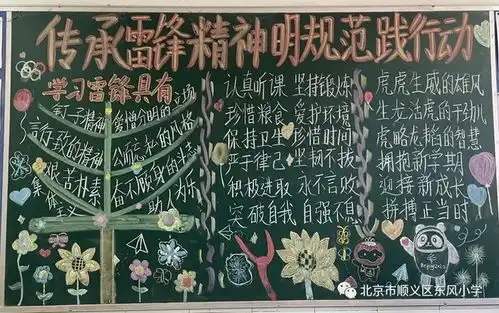 传承雷锋精神明规范践行动
学习雷锋具有
钉子精神
爱憎分明的立场
言行一致的精神
公而忘私的风格
艰苦朴素
奋不顾身的斗志
集体主义
助人为乐
认真听课 坚持锻炼
珍惜粮食 爱护环境
保持卫生 珍惜时间
严于律己 坚韧不拔
积极进取 永不言败
突破自我 自强不息
虎虎生威的雄风
生龙活虎的干劲儿
虎略龙韬的智慧
拥抱新学期
迎接新成长
拼搏正当时
北京市顺义区东风小学